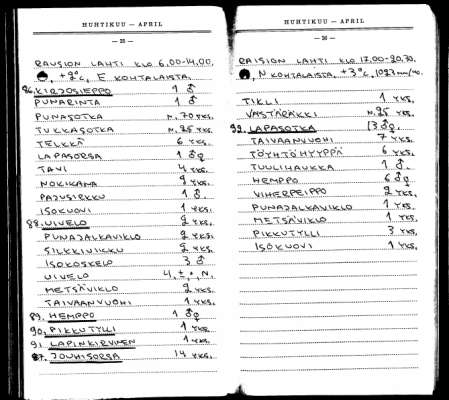 HUHTIKUU — APRIL
RAUSION LAHTI KLO 6.00-14.00.
+2°C, E KOHTALAISTA.
86. KIRJOSIEPPO 1 ♂
PUNARINTA 1 ♂
PUNASOTKA N. 70 YKS.
TUKKASOTKA N. 25 YKS.
TELKKÄ 6 YKS.
LAPASORSA 1 ♂♀
TAVI 4 YKS.
NOKIKANA 2 YKS.
PAJUSIRKKU 1 ♂
ISOKUOVI 1 YKS.
88. UIVELO 2 YKS.
PUNAJALKAVIKLO 2 YKS.
SILKKIUIKKU 2 YKS.
ISOKOSKELO 3 ♂
UIVELO
METSÄVIKLO 2 YKS.
TAIVAANVUOHI 1 YKS.
89. HEMPPO 1 ♂♀
90. PIKKUTYLLI 1 YKS.
91. LAPINKIRVINEN 1 YKS.
87. JOUHISORSA 14 YKS.
HUHTIKUU — APRIL
RAISION LAHTI KLO 17.00-20.30.
N KOHTALAISTA, +3°C,
TIKLI 1 YKS.
VÄSTÄRÄKKI N. 25 YKS.
LAPASOTKA
TAIVAANVUOHI 7 YKS.
TÖYHTÖHYYPPÄ 6 YKS.
TUULIHAUKKA 1 ♂
HEMPPO 6 ♂♀
VIHERPEIPPO 2 YKS.
PUNAJALKAVIKLO 1 YKS.
METSÄVIKLO 1 YKS.
PIKKUTYLLI 3 YKS.
ISOKUOVI 1 YKS.